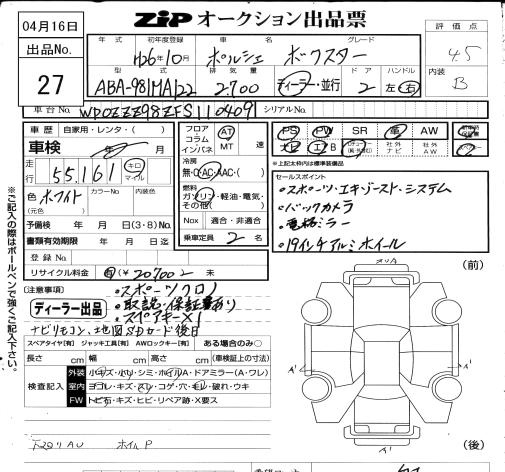 04月16日
ZiP オークション出品票
評価点
4.5
出品No.
27
年式 初年度登録 車名 グレード
H26年10月 ポルシェ ボクスター
型式 排気量 ドア ハンドル
ABA-981MA122 2,700 ディーラー・並行 2 左 右
内装
B
車台No. WP0ZZZ98ZFS110409 シリアルNo.
車歴 自家用・レンタ・( )
車検 年 月
走行 55,161 キロ マイル
色 ホワイト カラーNo. 内装色
(元色)
予備検 年 月 日(3・8)No.
書類有効期限 年 月 日迄
登録No.
リサイクル料金 有(¥20700) 未
フロア
コラム
インパネ
AT
MT
速
冷房
無・C・AC・AAC・( )
燃料
ガソリン・軽油・電気・
その他( )
Nox 適合・非適合
乗車定員 2 名
PS PW SR 革 AW
ナビ エアB 社外ナビ 社外AW
※上記太わ内は標準装備品
セールスポイント
・スポーツ・エキゾースト・システム
・バックカメラ
・電格ミラー
・19インチアルミホイール
注意事項
ディーラー出品
・スポーツクロノ
・取説・保証書あり
・スペアキー×1
ナビリモコン、地図SDカード後日
スペアタイヤ[有] ジャッキ工具[有] AWロックキー[有] ある場合のみ○
長さ cm 幅 cm 高さ cm (車検証上の寸法)
検査記入
外装 小キズ・小ソリ・シミ・ホイルA・ドアミラー(A・ワレ)
室内 ヨゴレ・キズ・スリ・コゲ・穴・モル・破れ・ウキ
FW トビ石・キズ・ヒビ・リペア跡・X要ス
ホイルP
※ご記入の際はボールペンで強くご記入下さい。
(前)
A
A'
A'
A'
(後)